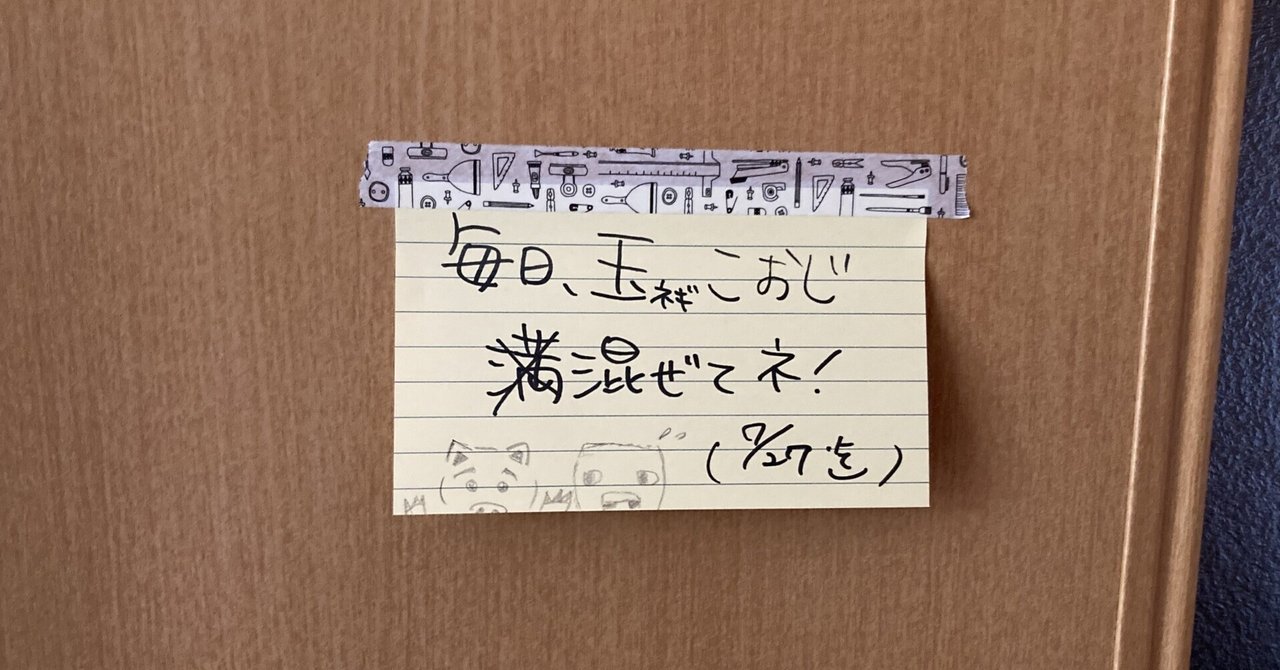 毎日、玉ネギこおじ
混ぜてネ!
(7/27迄)